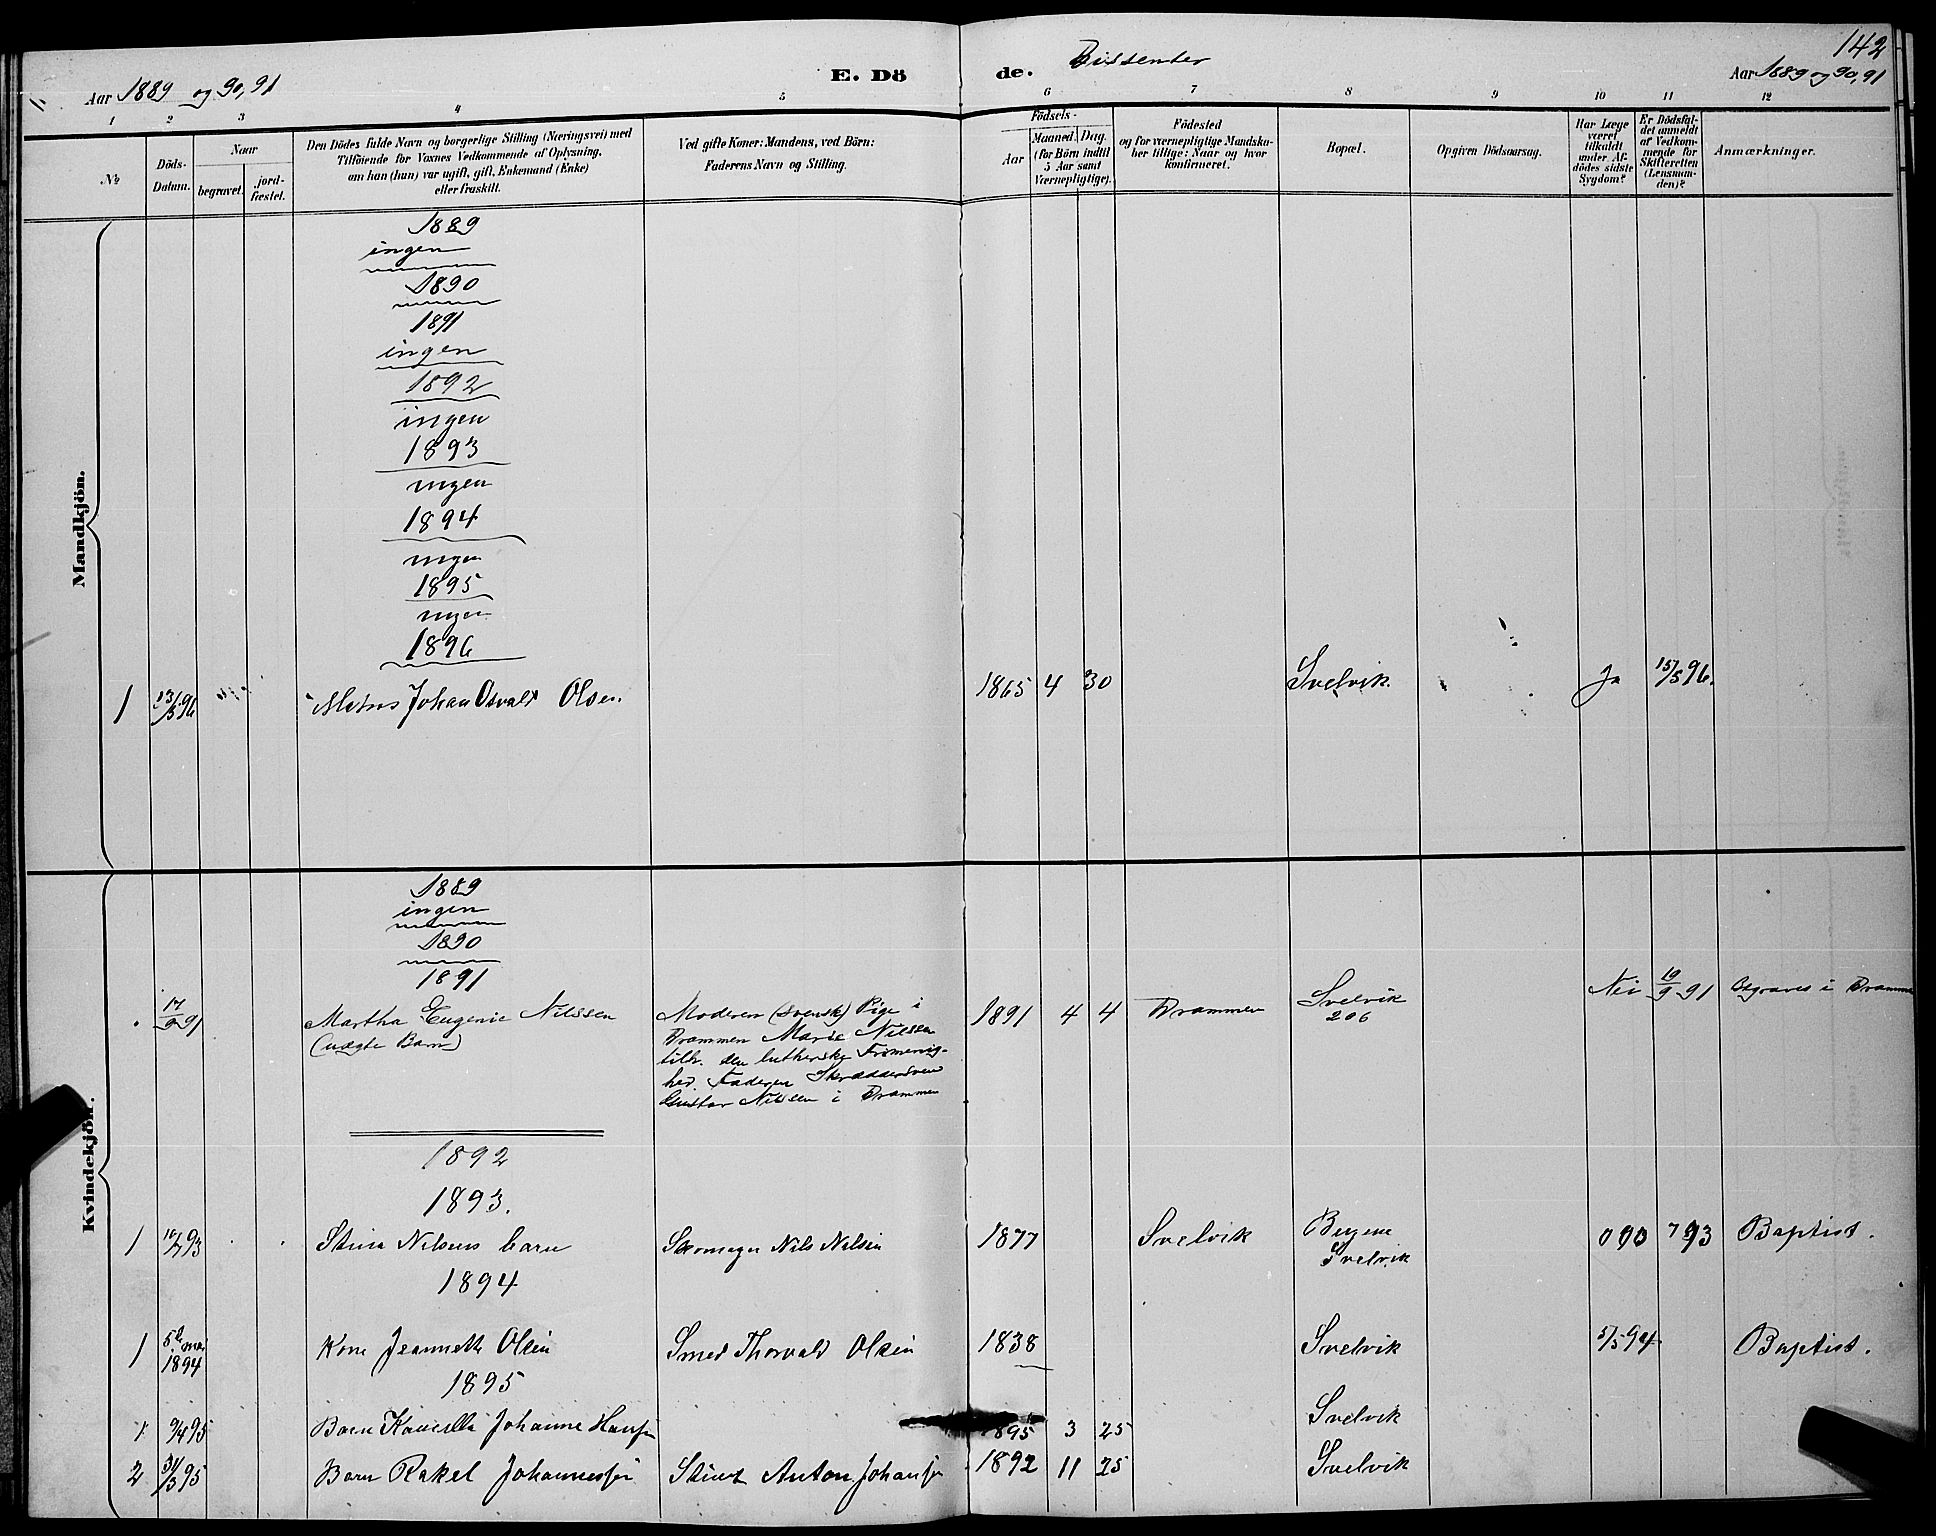 142
Aar 1889 og 90, 91
E. Dö
de. Dissenter
Aar 1889 og 90, 91
1 2 3 4 5 6 7 8 9 10 11 12
№
Döds-
Datum.
Naar
begravet.
jord-
fæstet.
Den Dödes fulde Navn og borgerlige Stilling (Næringsvei) med
Tilföiende for Voxnes Vedkommende af Oplysning,
om han (hun) var ugift, gift, Enkemand (Enke)
eller fraskilt.
Ved gifte Koner: Mandens, ved Börn:
Faderens Navn og Stilling.
Födsels-
Aar
Maaned. Dag.
(for Börn indtil
5 Aar samt
Værnepligtige).
Födested
og for værnepligtige Mandska-
ber tillige: Naar og hvor
konfirmeret.
Bopæl.
Opgiven Dödsaarsag.
Har Læge
været
tilkaldt
under Af-
dödes sidste
Sygdom?
Er Dödsfal-
det anmeldt
af Vedkom-
mende for
Skifteretten
(Lensman-
den)?
Anmærkninger.
Mandkjön.
1889
ingen
1890
1891
ingen
1892
ingen
1893
ingen
1894
ingen
1895
ingen
1896
1 13/5 96 Johan Osvald Olsen. 1865 4 30 Svelvik. Ja 15/5 96.
Kvindekjön.
1889
ingen
1890
1891
17/9 91 Martha Eugenie Nilssen
(uægte Barn)
Moderen (svensk) Pige i
Drammen Marie Nilsen
tilh. den lutherske
hed. Faderen Skræddersvend
Gustav Nilsen i Drammen
1891 4 4 Drammen Svelvik
206
Nei 19/9 91 Begraves i Drammen
1892
1893.
1 16/7 93 Stina Nilsens barn Skomager Nils Nilsen 1877 Svelvik
Svelvik
93 Baptist.
1894
1 5te mai
1894
Kone Jeanneth Olsen Smed Thorvald Olsen 1838 Svelvik 5/5 94 Baptist.
1895
1 9/4 95 Barn Johanne 1895 3 25 Svelvik
2 31/3 95 Barn Rakel Anton 1892 11 25 Svelvik